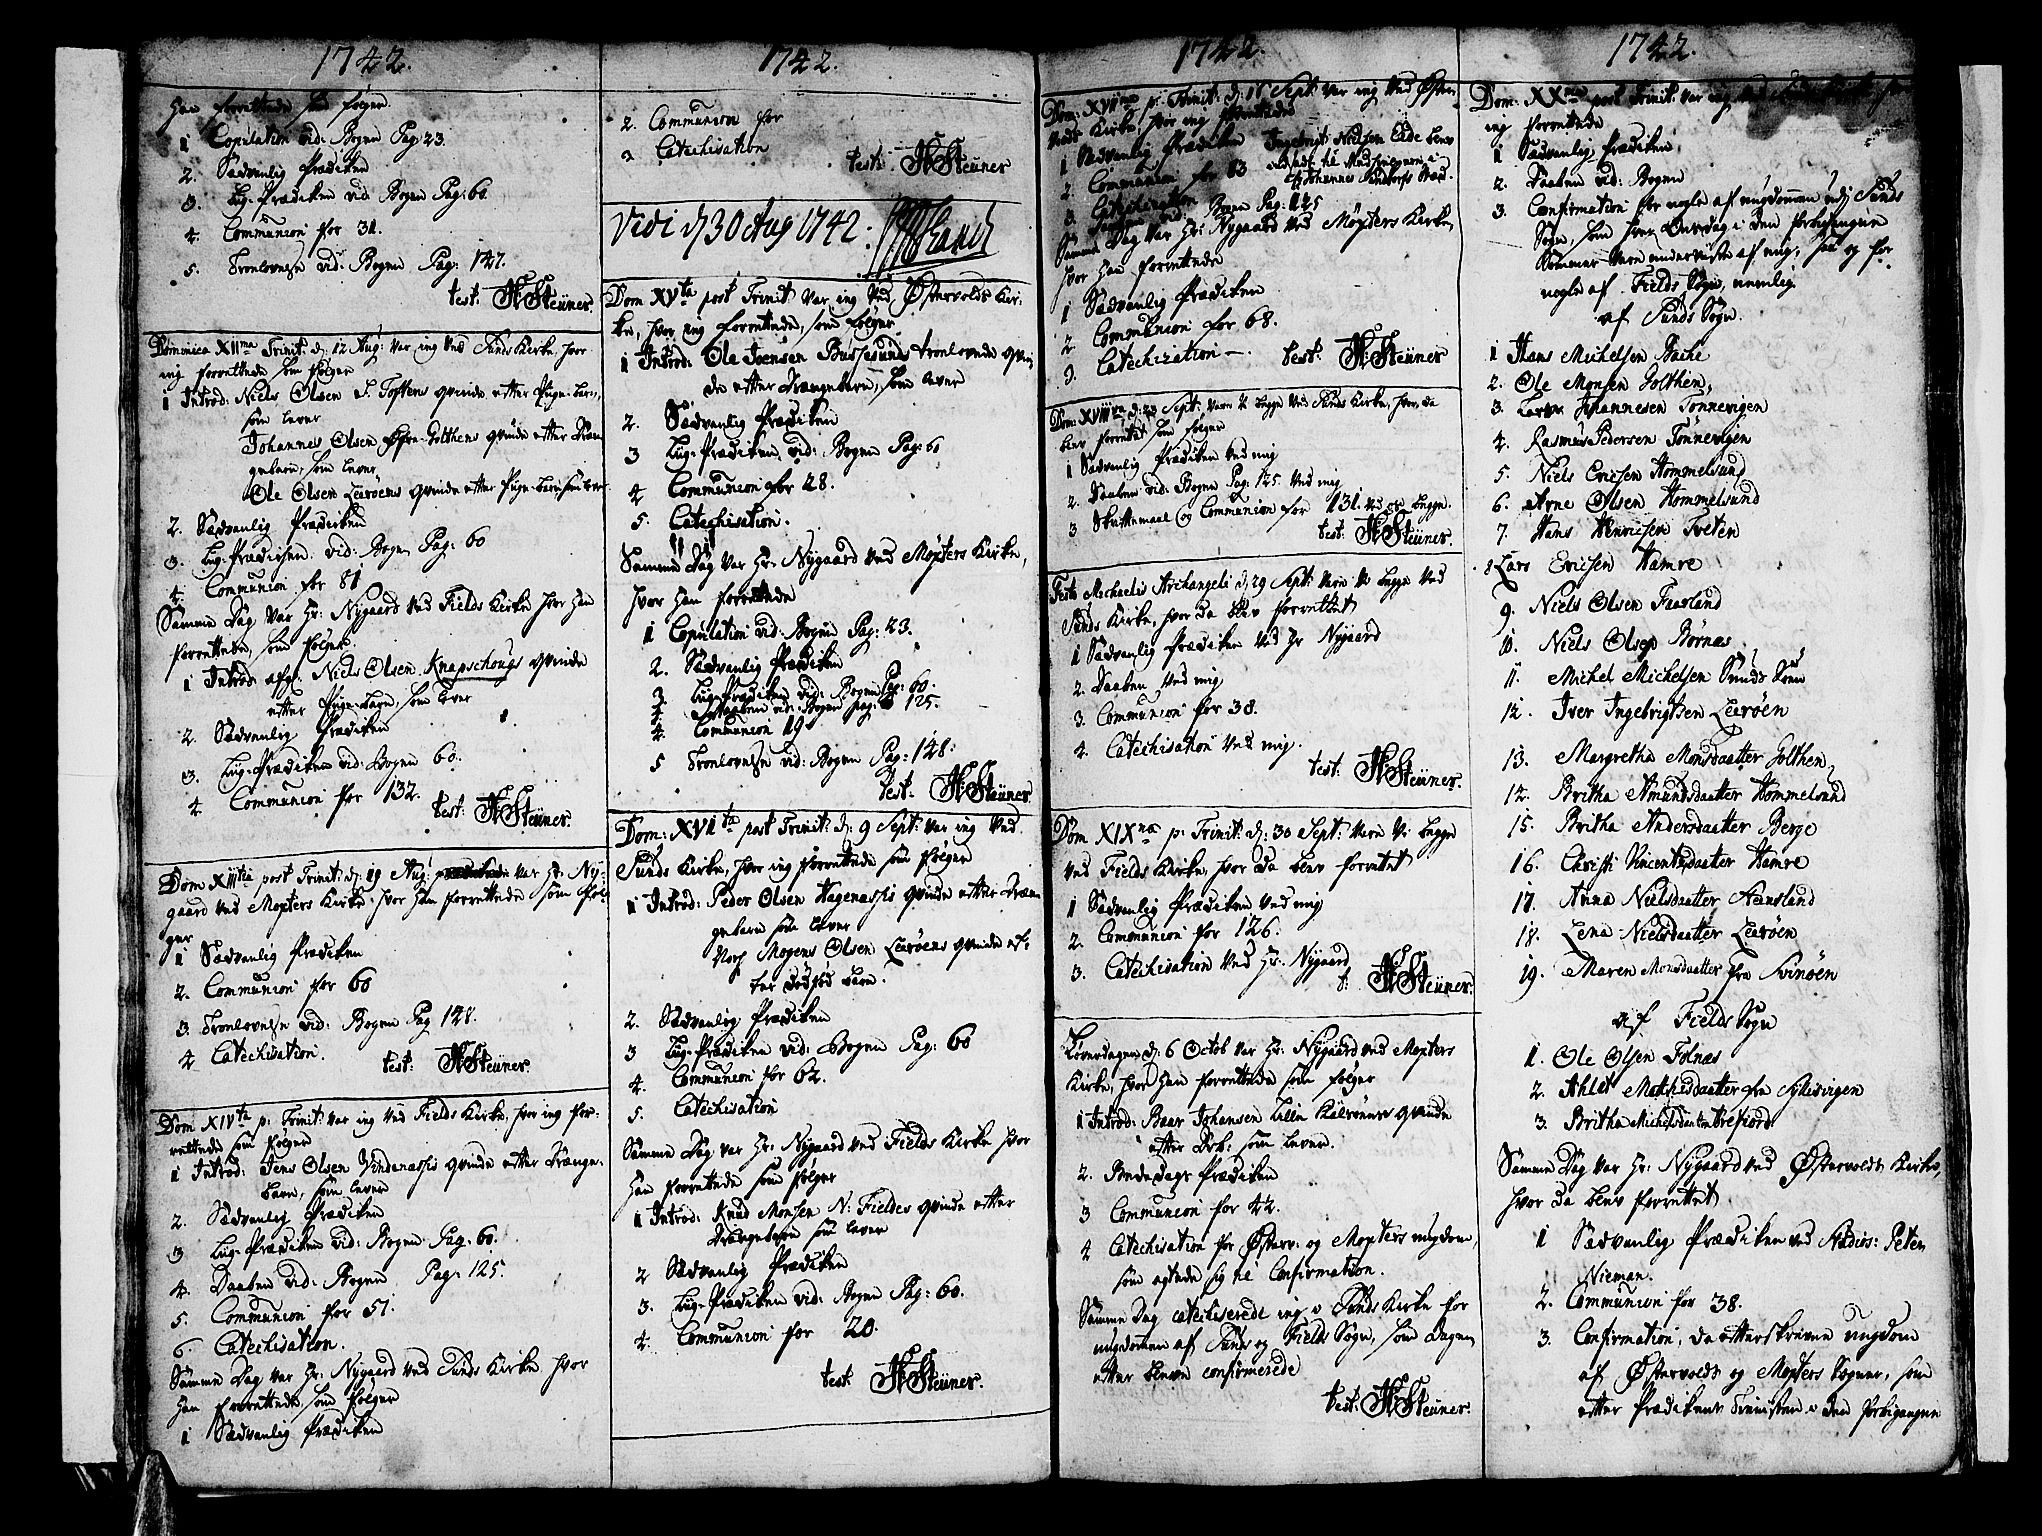 1742.
Han forrettede som følger
1 Copulation vid: Bogen Pag: 23.
2. Sædvanlig Prædiken
3. Liig-Prædiken vid: Bogen Pag: 60
4. Communion for 31.
5. Tronlovelse vid: Bogen Pag: 147.
test: HSteüner.
Dominica XIIma Trinit: d: 12 Aug: var ieg ved Sunds Kirke, hvor
ieg forrettede som følger
1 Introd: Niels Olsen S. Toftens qvinde efter Pige-barn,
som lever
Johannes Olsen Øfre-Golthens qvinde efter Dren
gebarn, som lever,
Ole Olsen Leeröens qvinde efter Pige-barn som lever
2. Sædvanlig Prædiken
3. Liig-Prædiken vid: Bogen Pag: 60
4. Communion for 81
Samme Dag var Hr: Nygaard ved Fields Kirke hvor Han
forrettede, som følger
1 Introd: afg: Niels Olsen Knapschougs qvinde
efter Pige-barn, som lever
2. Sædvanlig Prædiken
3. Liig-Prædiken vid: Bogen 60.
4 Communion for 132.
test: HSteüner.
Dom XIIItia post Trinit: d: 19 Aug: var Hr: Ny-
gaard ved Møgsters Kirke hvor Han forrettede som føl
ger
1 Sædvanlig Prædiken
2. Communion for 60
3. Tronlovelse vid: Bogen Pag 148.
4 Catechisation.
test: HSteüner.
Dom XIVta p: Trinit: var ieg ved Fields Kirke, hvor ieg for-
rettede som følger
1 Introd: Jens Olsen Vindenessis qvinde efter Drenge-
barn, som lever
2. Sædvanlig Prædiken
3 Liig-Prædiken vid: Bogen Pag: 60.
4. Daaben vid: Bogen Pag: 125.
5. Communion for 51.
6. Catechisation.
Samme Dag var Hr: Nygaard ved Sunds Kirke hvor
Han forrettede, som følger
1 Sædvanlig Prædiken
1742.
2. Communion for
3 Catechisation
test: HSteüner
Vidi d 30 Aug 1742.
Dom XVta post Trinit: var ieg ved Østervolds Kir-
ke, hvor ieg forrettede, som følger
1 Introd: Ole Iversen Bussesunds tronlovede qvin
de efter Drengebarn, som lever
2. Sædvanlig Prædiken
3 Liig-Prædiken vid: Bogen Pag: 60
4 Communion for 28.
5. Catechisation.
Samme Dag var Hr: Nygaard ved Møgsters Kirke,
hvor Han forrettede
1 Copulation vid: Bogen Pag: 23.
2. Sædvanlig Prædiken
3. Liig-Prædiken vid: Bogen Pag: 60.
4. Daaben vid: Bogen pag: 125.
4. Communion 19
5 Tronlovelse vid: Bogen Pag: 148.
test. HSteüner
Dom: XVIta post Trinit: d: 9 Sept: var ieg ved
Sunds Kirke, hvor ieg forrettede som følger
1 Introd: Peder Olsen Hagenessis qvinde efter Dren
gebarn som lever
Mogens Olsen Leeröens qvinde ef-
ter dødfød barn.
2. Sædvanlig Prædiken
3 Liig-Prædiken vid: Bogen Pag: 60
4. Communion for 62.
5. Catechisation
Samme Dag var Hr: Nygaard ved Fields Kirke hvor
Han forrettede som følger
1 Introd: Knud Monsen N: Fieldes qvinde efter
Drengebarn som lever
2 Sædvanlig Prædiken
3. Liig-Prædiken vid: Bogen Pag: 60.
4. Communion for 20.
test: HSteüner.
1742.
Dom: XVIIma p: Trinit: d: 16 Sept: var ieg ved Øster-
volds Kirke, hvor ieg forrettede
1 Sædvanlig Prædiken Ingebrigt Nielsen Eide blev
2. Communion for 63
3 Catechisation
Daaben vid: Bogen Pag: 125
Samme Dag var Hr: Nygaard ved Møgsters Kirke,
hvor Han forrettede
1 Sædvanlig Prædiken
2 Communion for 68.
3. Catechization —. test: HSteüner
Dom: XVIIIva d: 23 Sept: vare Vi begge ved Sunds Kirke, hvor da
blev forrettet som følger
1 Sædvanlig Prædiken ved mig
2. Daaben vid: Bogen Pag: 125 ved mig
3 Skriftemaal og Communion for 131. ved os begge.
test: HSteüner.
Festo Michaelis Archangeli d: 29 Sept: vare Vi begge ved
Sunds Kirke, hvor da blev forrettet
1 Sædvanlig Prædiken ved Hr Nygaard
2. Daaben ved mig
3. Communion for 38.
4. Catechisation ved mig.
test: HSteüner.
Dom XIXna p: Trinit: d: 30 Sept: vare Vi begge
ved Fields Kirke, hvor da blev forrettet
1 Sædvanlig Prædiken ved mig
2. Communion for 126.
3. Catechisation ved Hr: Nygaard
t: HSteüner.
Løverdagen d: 6 Octob var Hr: Nygaard ved Møgsters
Kirke, hvor Han forrettede som følger
1 Introd: Baar Johansen Lille Kalsöens qvinde
efter Drb: som lever.
2. Bededags Prædiken
3 Communion for 42.
4 Catechisation for Østerv: og Møgsters ungdom,
som agtede sig til Confirmation.
Samme Dag catechiserede ieg i Sunds Kirke for
ungdommen af Sunds og Fields Sogn, som Dagen
efter bleve confirmerede
test: HSteüner.
1742.
Dom: XXma post Trinit: var ieg ved Sunds Kirke,
ieg forrettede
1 Sædvanlig Prædiken,
2. Daaben vid: Bogen
3. Confirmation for nogle af ungdommen udj Sunds
Sogn som hver Onsdag i den forbigangene
Sommer vare underviiste af mig, saa og for
nogle af Fields Sogn, nemlig
af Sunds Sogn.
1 Hans Michelsen Bache
2. Ole Monsen Golthen,
3. Lars Johannesen Tønnevigen
4. Rasmus Pedersen Tønnevigen
5. Niels Ericsen Hommelsund
6. Arne Olsen Hommelsund
7. Hans Henricsen Tveten
8 Lars Ericsen Hamre
9. Niels Olsen Faarland
10. Niels Olsen Børnæs
11. Michel Michelsen Sunds Søen
12. Iver Ingebrigtsen Leeröen
13. Margretha Monsdaatter Golthen,
14. Britha Amundsdaatter Hommelsund
15. Britha Andersdaatter Berge
16. Christi Vincentsdaatter Hamre
17. Anna Nielsdaatter Steensland
18. Lena Nielsdaatter Leeröen
19. Maren Monsdaatter fra Svinöen
af Fields Sogn
1. Ole Olsen Folnæs
2. Ahlet Mathisdaatter fra
3. Britha Michelsdaatter
Samme Dag var Hr: Nygaard ved Østervolds Kirke,
hvor da blev forrettet
1 Sædvanlig Prædiken ved Studios: Peter
Nieman.
2. Communion for 38.
3. Confirmation, da efterskrevne ungdom
af Østervolds og Møgsters Sogner, som
efter Prædikens Tienesten i den forbigangene